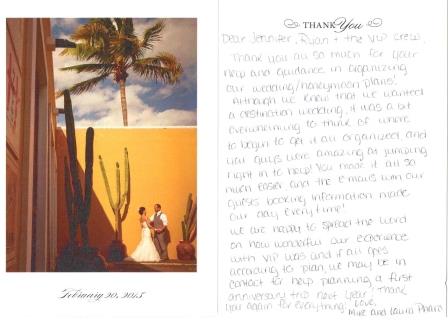 February 20, 2015
THANK You
Dear Jennifer, Ryan + the VIP Crew,
Thank you all so much for your
help and guidance in organizing
our wedding/honeymoon plans!
Although we knew that we wanted
a destination wedding, it was a bit
overwhelming to think of where
to begin to get it all organized, and
you guys were amazing at jumping
right in to help! You made it all so
much easier and the e-mails with our
guests booking information made
our day everytime!
We are happy to spread the word
on how wonderful our experience
with VIP was and if all goes
according to plan, we may be in
contact for help planning a first
anniversary trip next year! Thank
you again for everything! Love,
Mike and Laura